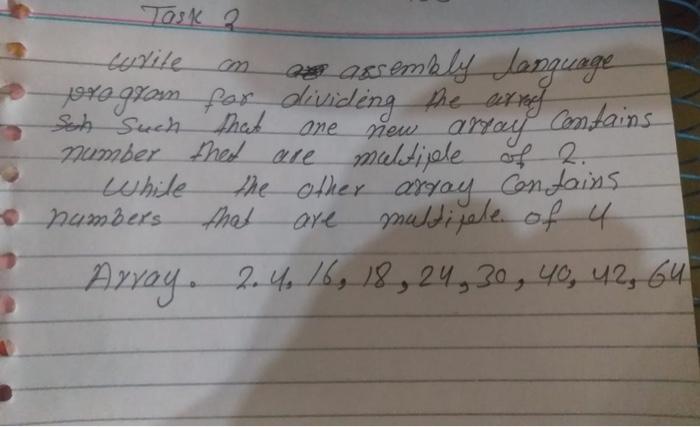 Task 2
Write an assembly language
program for dividing the array
Such that one new array Contains
number thet are multiple of 2.
While the other array Contains
numbers that are multiple of 4
Array. 2.4, 16, 18, 24, 30, 40, 42, 64